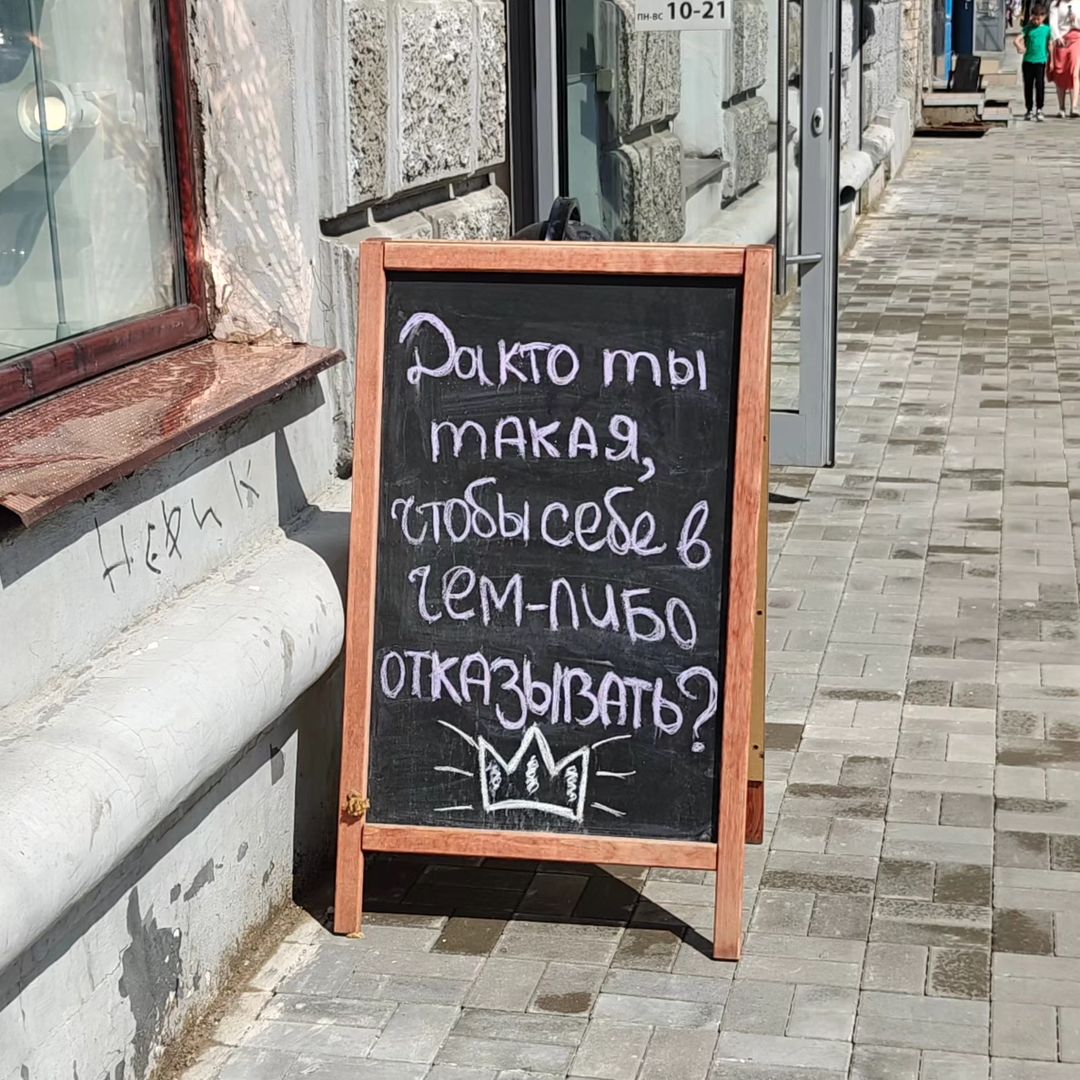 ПН-ВС 10-21
Да кто ты
такая,
чтобы себе в
чем-либо
отказывать?